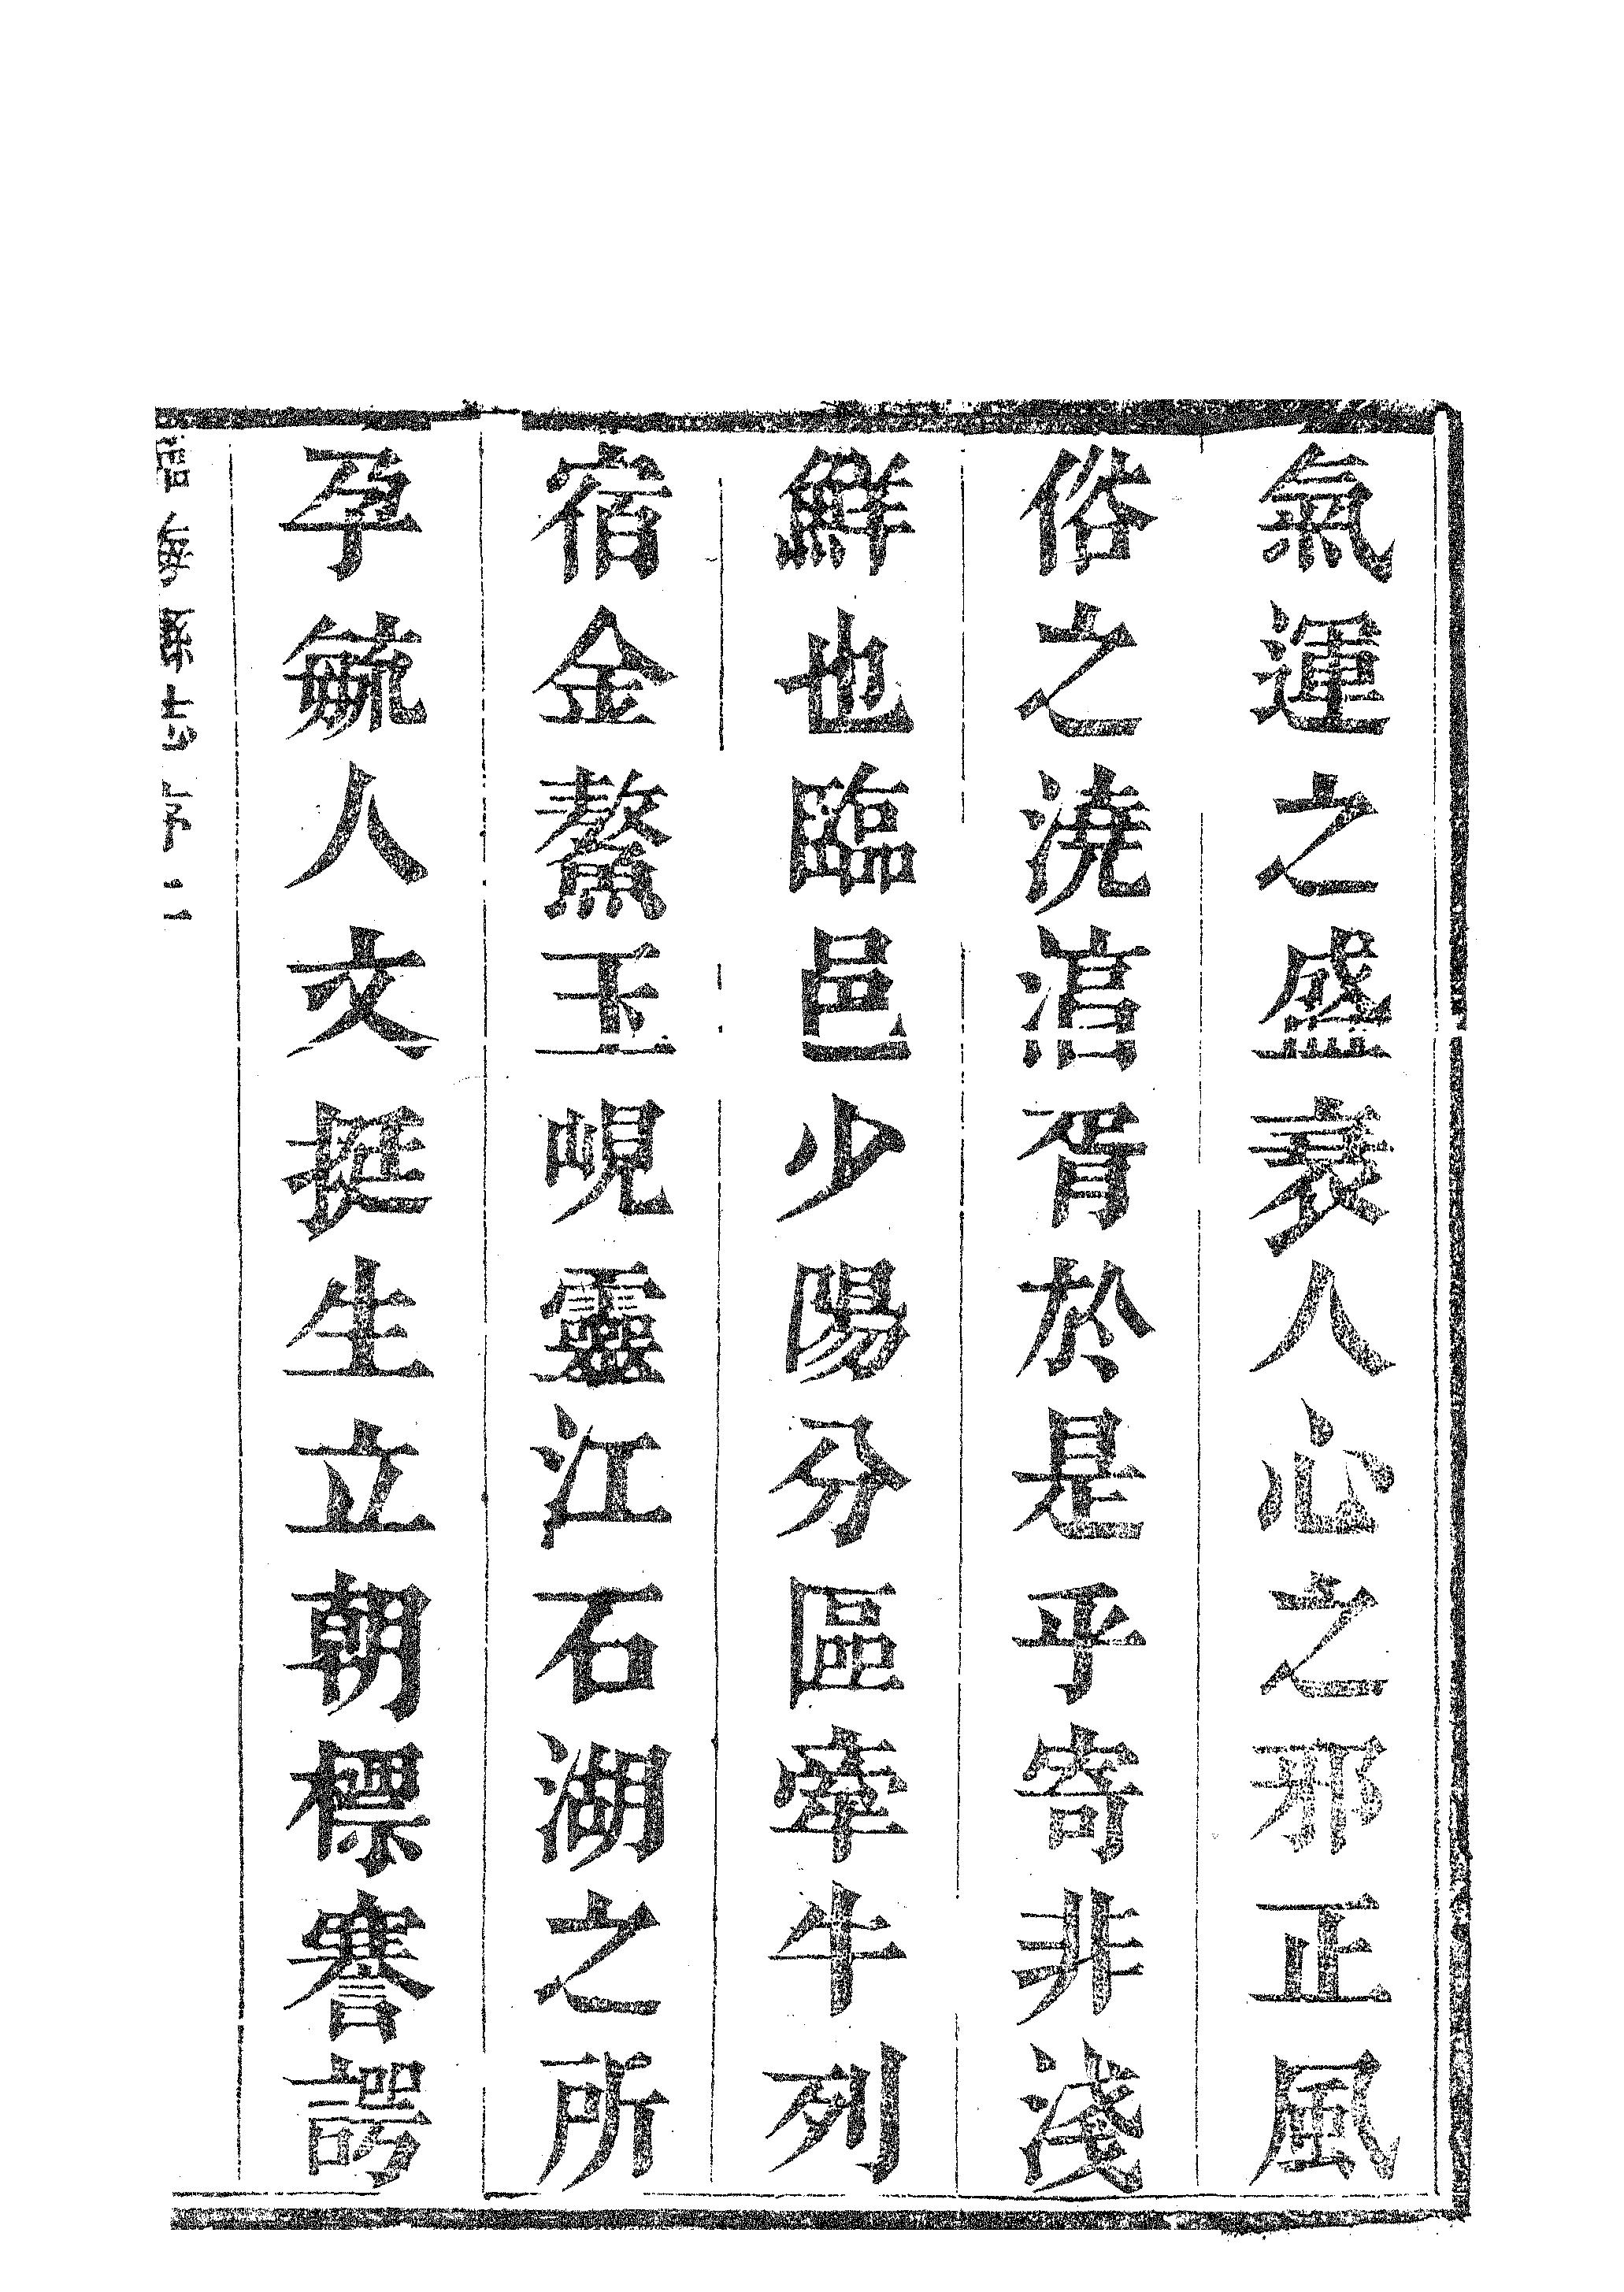 氣運之盛衰人心之邪正風
俗之澆涫胥於是乎寄非淺
鮮也臨邑少陽分區牽牛列
宿金鰲玉峴靈江石湖之所
孕毓人文挺生立朝標謇諤
臨海縣志序二